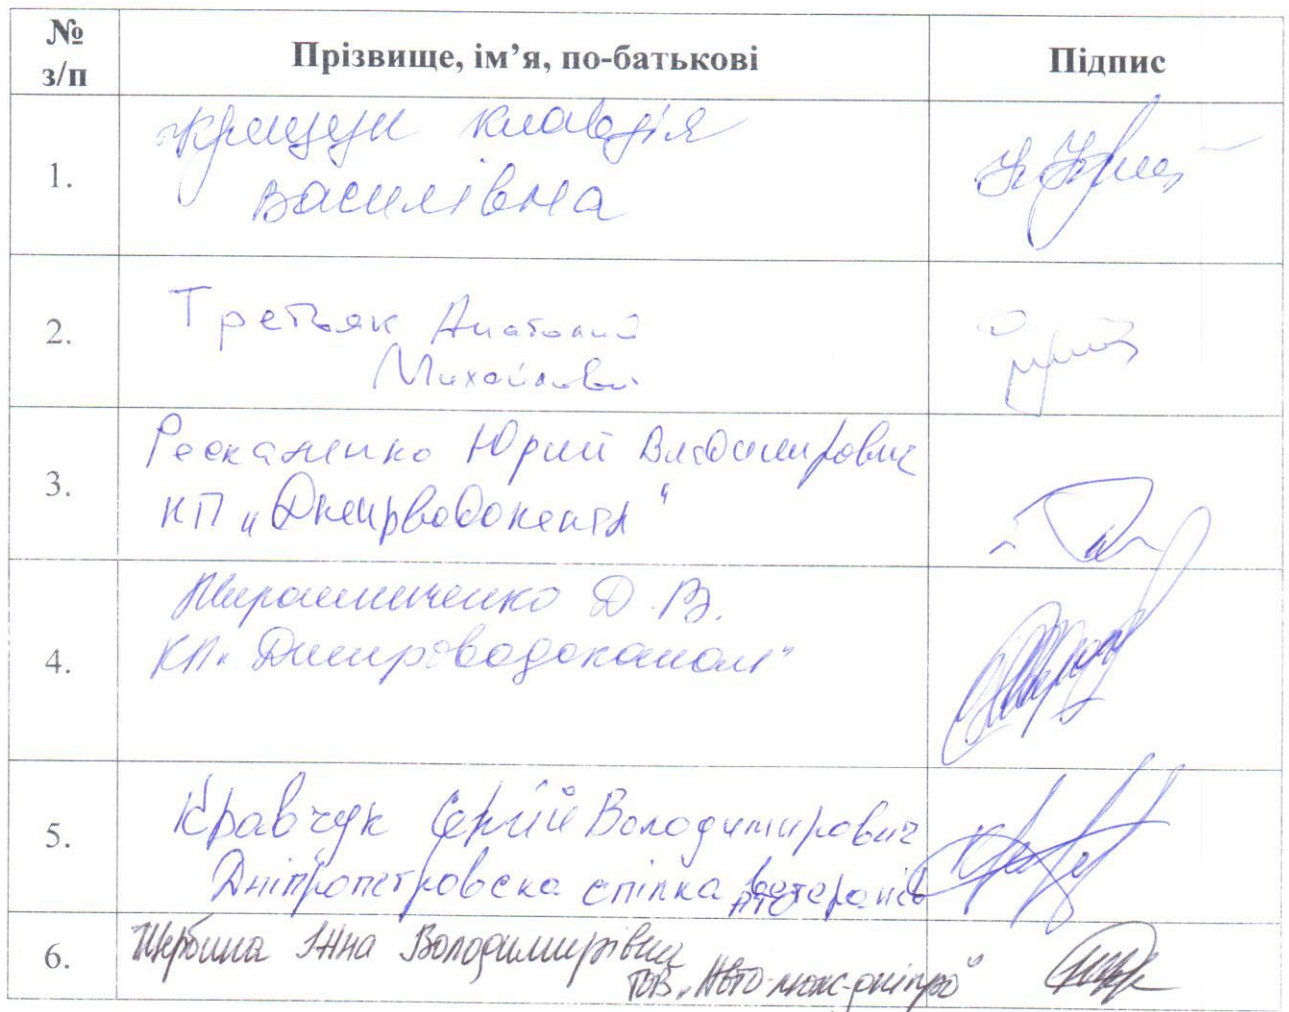 № з/п Прізвище, ім’я, по-батькові Підпис
1. Клавдія
Василівна
2. Третьяк Анатолий
Михайлович
3. Юрий Владимирович
КП „Днепрводоканал“
4. Мирошниченко Д. В.
КП „Днипроводоканал“
5. Кравчук Сергій Володимирович
Дніпропетровска спілка ветеранів АТО
6. Щербина Інна Володимирівна
ТОВ „Авто-люкс-дніпро“